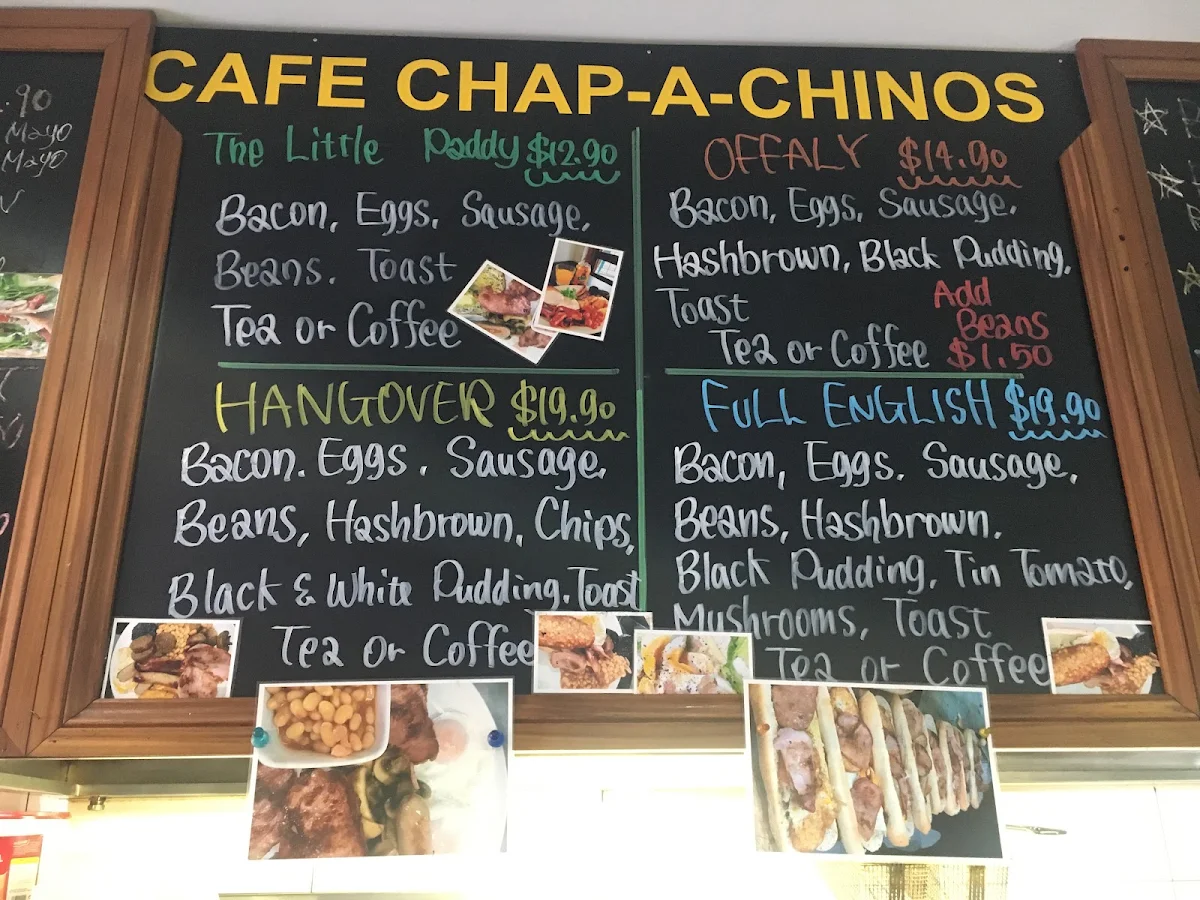 CAFE CHAP-A-CHINOS
The Little Paddy $12.90
Bacon, Eggs, Sausage,
Beans. Toast
Tea or Coffee
OFFALY $14.90
Bacon, Eggs, Sausage.
Hashbrown, Black Pudding,
Toast
Add
Beans
$1.50
Tea or Coffee
HANGOVER $19.90
Bacon. Eggs. Sausage,
Beans, Hashbrown, Chips,
Black & White Pudding, Toast
Tea or Coffee
FULL ENGLISH $19.90
Bacon, Eggs. Sausage,
Beans, Hashbrown.
Black Pudding, Tin Tomato,
Mushrooms, Toast
Tea or Coffee
.90
Mayo
Mayo